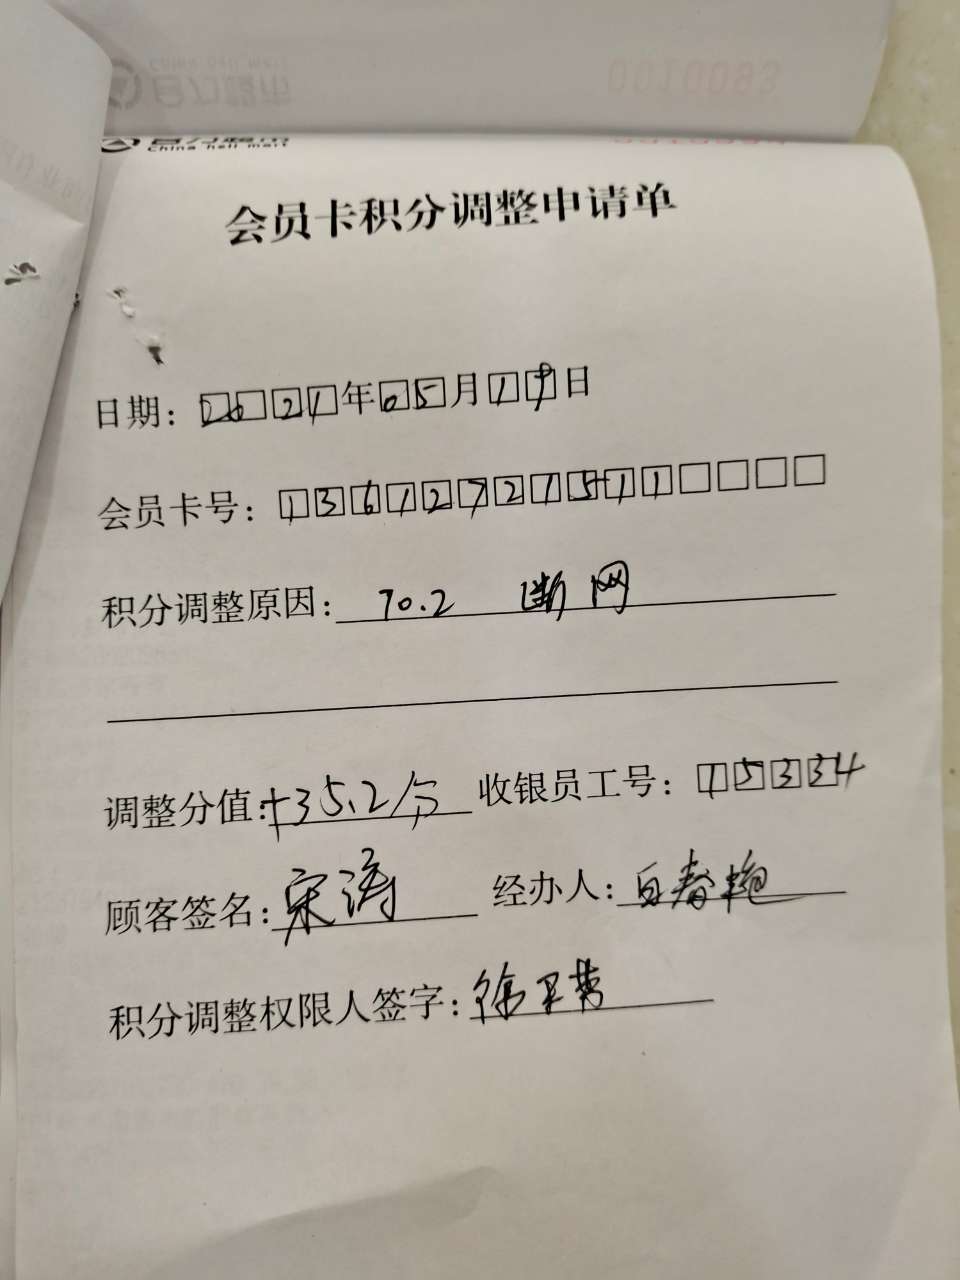 0010093
China heli mart
会员卡积分调整申请单
日期: 2021年05月19日
会员卡号: 13612721511
积分调整原因: 70.2 断网
调整分值: +35.2分 收银员工号: 15334
顾客签名: 宋涛 经办人: 白春艳
积分调整权限人签字: 徐